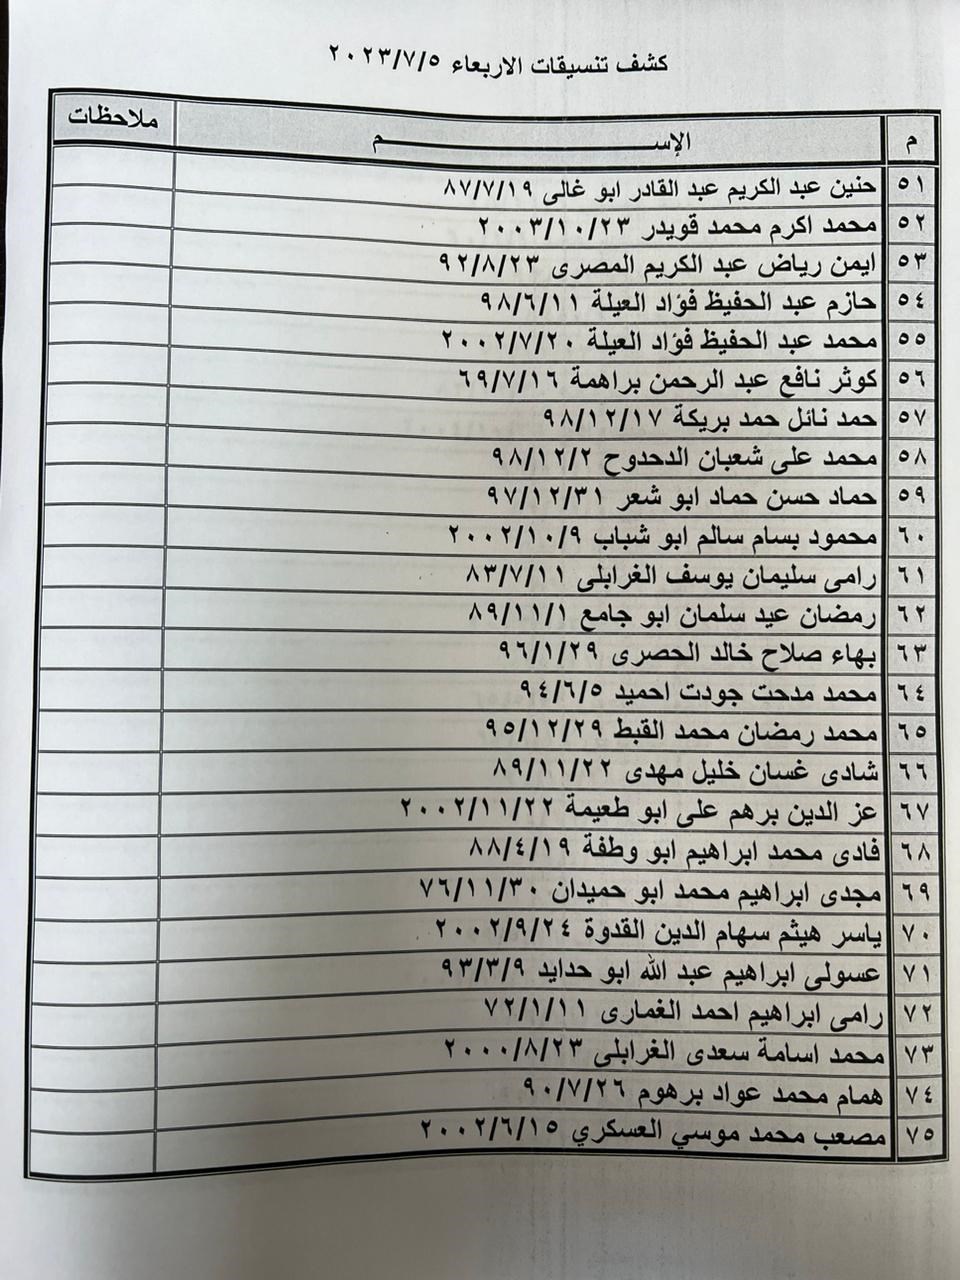 كشف تنسيقات الاربعاء ٢٠٢٣/٧/٥
م الإســـــــــم ملاحظات
٥١ حنين عبد الكريم عبد القادر ابو غالى ٨٧/٧/١٩
٥٢ محمد اكرم محمد قويدر ٢٠٠٣/١٠/٢٣
٥٣ ايمن رياض عبد الكريم المصرى ٩٢/٨/٢٣
٥٤ حازم عبد الحفيظ فؤاد العيلة ٩٨/٦/١١
٥٥ محمد عبد الحفيظ فؤاد العيلة ٢٠٠٢/٧/٢٠
٥٦ كوثر نافع عبد الرحمن براهمة ٦٩/٧/١٦
٥٧ حمد نائل حمد بريكة ٩٨/١٢/١٧
٥٨ محمد على شعبان الدحدوح ٩٨/١٢/٢
٥٩ حماد حسن حماد ابو شعر ٩٧/١٢/٣١
٦٠ محمود بسام سالم ابو شباب ٢٠٠٢/١٠/٩
٦١ رامى سليمان يوسف الغرابلى ٨٣/٧/١١
٦٢ رمضان عيد سلمان ابو جامع ٨٩/١١/١
٦٣ بهاء صلاح خالد الحصرى ٩٦/١/٢٩
٦٤ محمد مدحت جودت احميد ٩٤/٦/٥
٦٥ محمد رمضان محمد القبط ٩٥/١٢/٢٩
٦٦ شادى غسان خليل مهدى ٨٩/١١/٢٢
٦٧ عز الدين برهم على ابو طعيمة ٢٠٠٢/١١/٢٢
٦٨ فادى محمد ابراهيم ابو وطفة ٨٨/٤/١٩
٦٩ مجدى ابراهيم محمد ابو حميدان ٧٦/١١/٣٠
٧٠ ياسر هيثم سهام الدين القدوة ٢٠٠٢/٩/٢٤
٧١ عسولى ابراهيم عبد الله ابو حدايد ٩٣/٣/٩
٧٢ رامى ابراهيم احمد الغمارى ٧٢/١/١١
٧٣ محمد اسامة سعدى الغرابلى ٢٠٠٠/٨/٢٣
٧٤ همام محمد عواد برهوم ٩٠/٧/٢٦
٧٥ مصعب محمد موسي العسكري ٢٠٠٢/٦/١٥